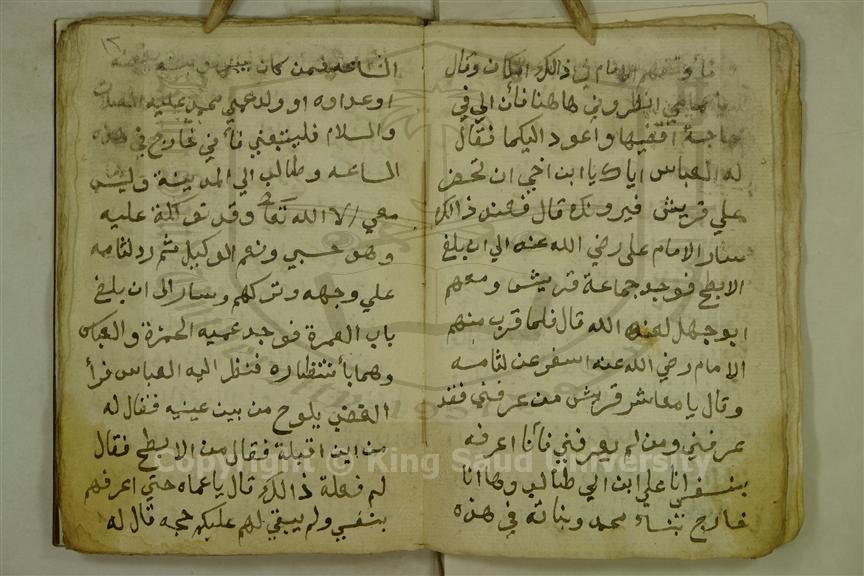 فأوقفهم الامام في ذالك المكان وقال
يا عمامي انظروني هاهنا فأن الي في
حاجة اقضيها واعود اليكما فقال
له العباس اياك يا ابن اخي ان تحضر
علي قريش فيرونك قال فعند ذالك
سار الامام على رضي الله عنه الي ان بلغ
الابطح فوجد جماعة قريش ومعهم
ابوجهل لعنه الله قال فلما قرب منهم
الامام رضي الله عنه اسفر عن لثامه
وقال يا معاشر قريش من عرفني فقد
عرفني ومن لم يعرفني فأنا اعرفه
بنفسي انا علي ابن ابي طالب وها انا
خارج بنساء محمد وبناته في هذه
الساعه فمن كان بيني وبينه
او عداوه او ولد عمي محمد عليه الصلات
والسلام فليتبعني فأني خارج في هذه
الساعه وطالب الي المدينة وليس
معي الا الله تعا وقد توكلة عليه
وهو حسبي ونعم الوكيل ثم رد لثامه
علي وجهه وتركهم وسار الى ان بلغ
باب العمرة فوجد عميه الحمزة والعباس
وهما بأنتظاره فنظر اليه العباس فرأ
الغضب يلوح من بين عينيه فقال له
من اين اقبلة فقال من الابطح فقال
لم فعلة ذالك قال يا عماه حتي اعرفهم
بنفسي ولم يبقي لهم عليكم حجه قال له
Copyright © King Saud University